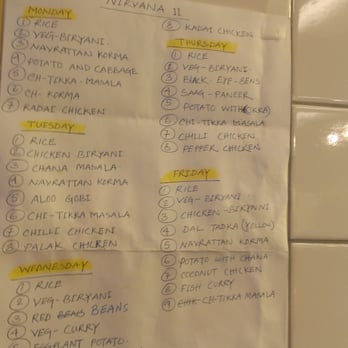 NIRVANA II
MONDAY
① RICE
② VEG-BIRYANI.
③ NAVRATTAN KORMA
④ POTATO AND CABBAGE
⑤ CH-TIKKA-MASALA
⑥ CH-KORMA
⑦ KADAI CHICKEN
TUESDAY
① RICE
② CHICKEN BIRYANI
③ CHANA MASALA
④ NAVRATTAN KORMA
⑤ ALOO GOBI
⑥ CHI-TIKKA MASALA
⑦ CHILLI CHICKEN
⑧ PALAK CHICKEN
WEDNESDAY
① RICE
② VEG-BIRYANI
③ RED BEANS
④ VEG-CURRY
⑤ EGGPLANT POTATO
⑧ KADAI CHICKEN
THURSDAY
① RICE
② VEG-BIRYANI
③ BLACK-EYE-BENS
④ SAAG-PANEER
⑤ POTATO WITH OKRA
⑥ CHI-TIKKA MASALA
⑦ CHILLI CHICKEN
⑧ PEPPER CHICKEN
FRIDAY
① RICE
② VEG-BIRYANI
③ CHICKEN-BIRYANI
④ DAL TADKA (YELLOW)
⑤ NAVRATTAN KORMA
⑥ POTATO WITH CHANA
⑦ COCONUT CHICKEN
⑧ FISH CURRY
⑨ CH-TIKKA MASALA